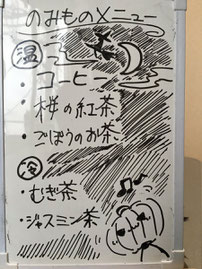 のみものメニュー
温
・コーヒー
・桜の紅茶
・ごぼうのお茶
冷
・むぎ茶
・ジャスミン茶